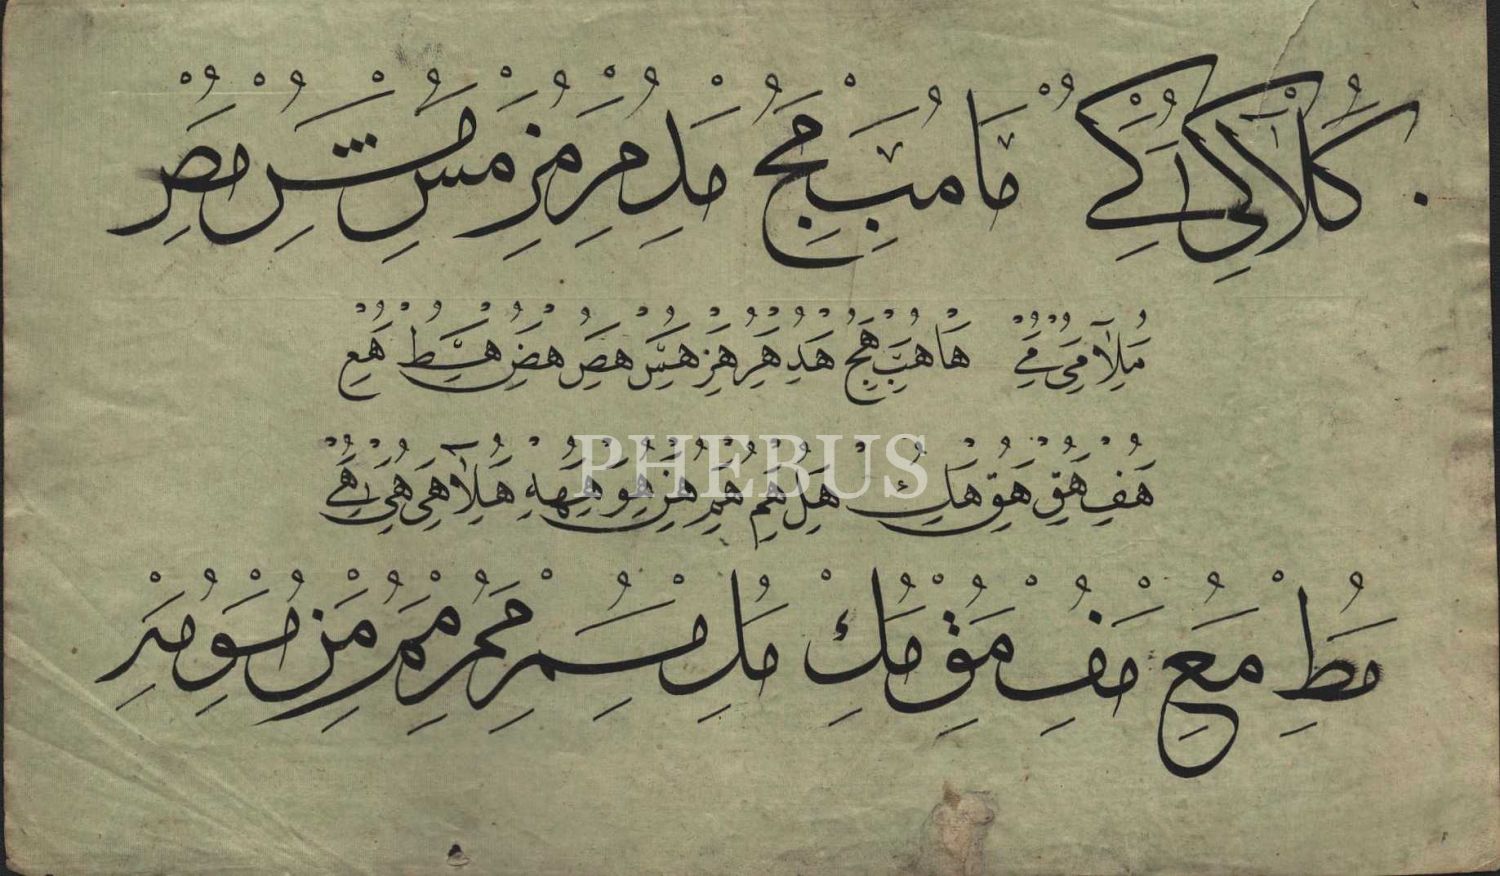 كلا كي كے ما مب مج مد مر مز مس مش مص
ملا مي مے ها هب هج هد هر هز هس هص هض هط هع
هف هق هق هك هل هم هم هن هو هه هلا هي هي هے
مط مع مف مق مك مل مم من مو
PHEBUS